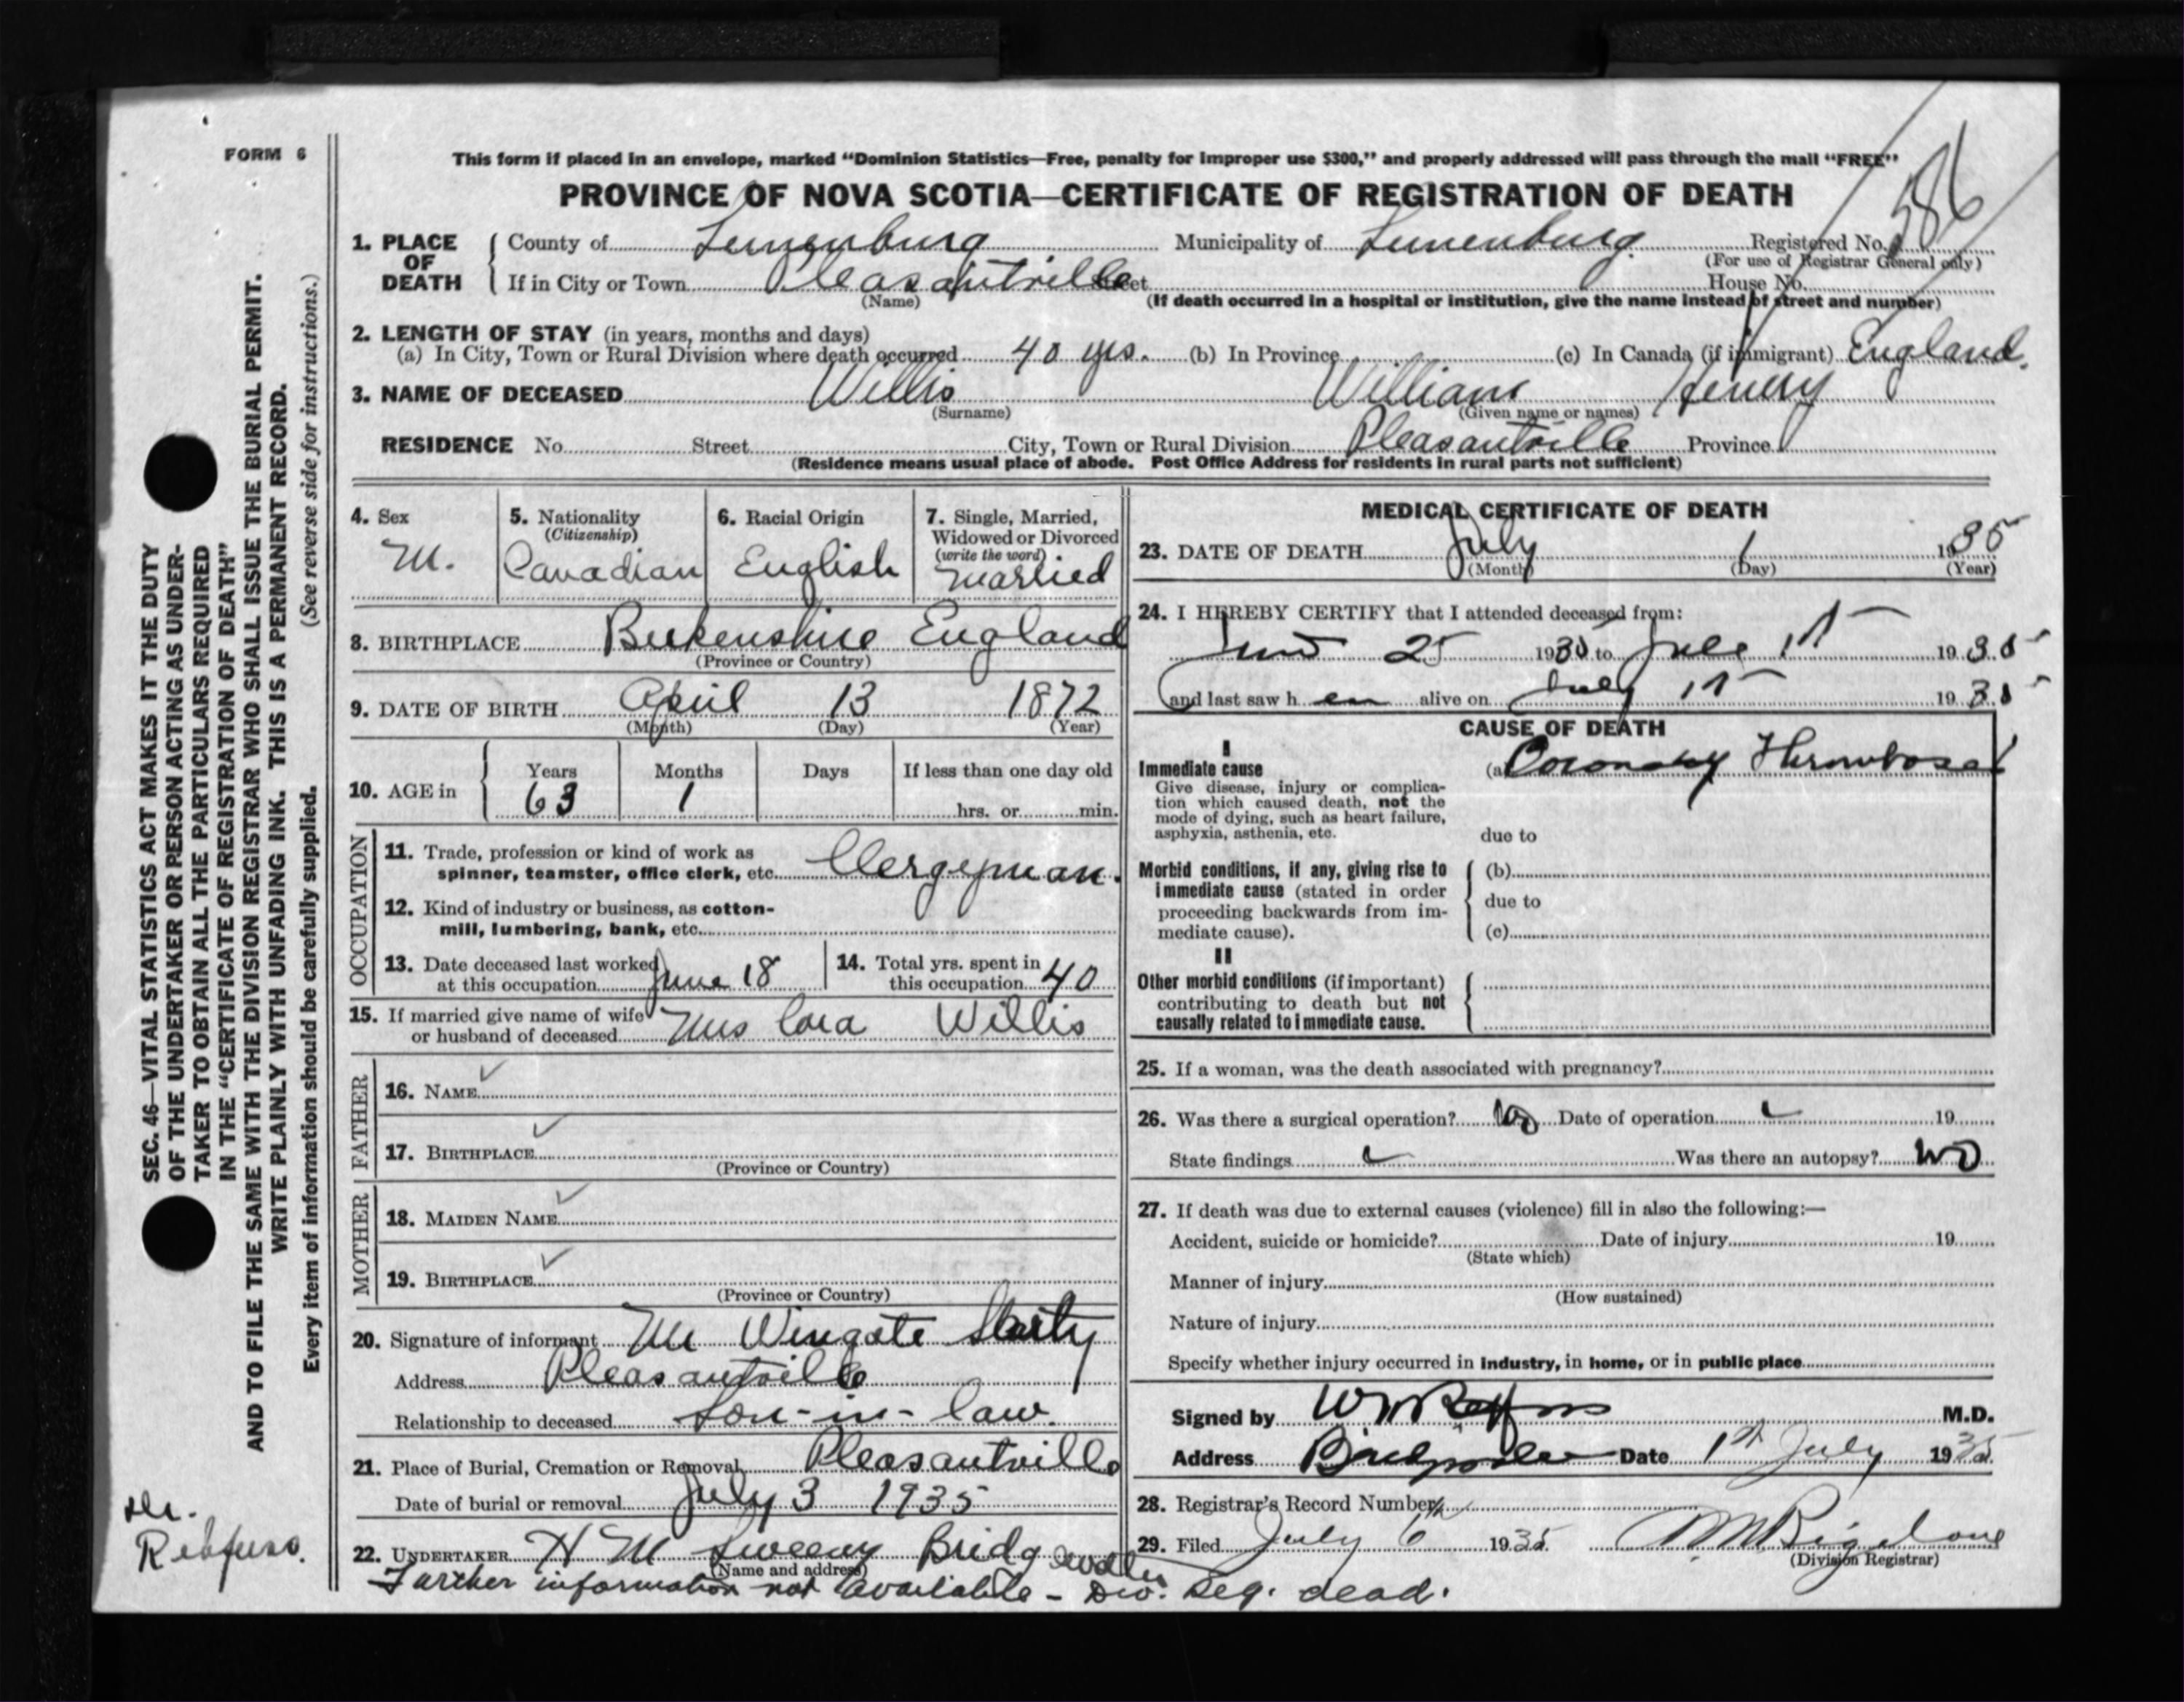 FORM 6
This form if placed in an envelope, marked “Dominion Statistics—Free, penalty for improper use $300,” and properly addressed will pass through the mail “FREE”
PROVINCE OF NOVA SCOTIA—CERTIFICATE OF REGISTRATION OF DEATH
586
1. PLACE OF DEATH { County of Lunenburg Municipality of Lunenburg. Registered No.
(For use of Registrar General only)
If in City or Town Pleasantville Street House No.
(Name) (If death occurred in a hospital or institution, give the name instead of street and number)
2. LENGTH OF STAY (in years, months and days)
(a) In City, Town or Rural Division where death occurred 40 yrs. (b) In Province (c) In Canada (if immigrant) England.
3. NAME OF DECEASED Willis William Henery
(Surname) (Given name or names)
RESIDENCE No. Street City, Town or Rural Division Pleasantville Province
(Residence means usual place of abode. Post Office Address for residents in rural parts not sufficient)
4. Sex M.
5. Nationality (Citizenship) Canadian
6. Racial Origin English
7. Single, Married, Widowed or Divorced (write the word) married
8. BIRTHPLACE England
(Province or Country)
9. DATE OF BIRTH April 13 1872
(Month) (Day) (Year)
10. AGE in { Years 63 Months 1 Days If less than one day old hrs. or min.
OCCUPATION
11. Trade, profession or kind of work as
spinner, teamster, office clerk, etc. Clergeman.
12. Kind of industry or business, as cotton-
mill, lumbering, bank, etc.
13. Date deceased last worked
at this occupation June 18
14. Total yrs. spent in
this occupation 40
15. If married give name of wife
or husband of deceased Mrs Cora Willis
FATHER
16. NAME
17. BIRTHPLACE
(Province or Country)
MOTHER
18. MAIDEN NAME
19. BIRTHPLACE
(Province or Country)
20. Signature of informant Mr Wingate
Address Pleasantville
Relationship to deceased Son-in-law.
21. Place of Burial, Cremation or Removal Pleasantville
Date of burial or removal July 3 1935
22. UNDERTAKER H M Sweeny Bridgewater
(Name and address)
Further information not available - Div. Reg. dead.
MEDICAL CERTIFICATE OF DEATH
23. DATE OF DEATH July 1 1935
(Month) (Day) (Year)
24. I HEREBY CERTIFY that I attended deceased from:
June 25 1935 to July 1st 1935
and last saw h alive on July 1st 1935
CAUSE OF DEATH
I
Immediate cause (a) Coronary Thrombosis
Give disease, injury or complica-
tion which caused death, not the
mode of dying, such as heart failure,
asphyxia, asthenia, etc.
due to
Morbid conditions, if any, giving rise to
immediate cause (stated in order
proceeding backwards from im-
mediate cause).
(b)
due to
(c)
II
Other morbid conditions (if important)
contributing to death but not
causally related to immediate cause.
25. If a woman, was the death associated with pregnancy?
26. Was there a surgical operation? No Date of operation 19
State findings Was there an autopsy? No
27. If death was due to external causes (violence) fill in also the following:—
Accident, suicide or homicide? Date of injury 19
(State which)
Manner of injury
(How sustained)
Nature of injury
Specify whether injury occurred in industry, in home, or in public place
Signed by M.D.
Address Bridgewater Date 1st July 1935
28. Registrar's Record Number
29. Filed July 6th 1935
(Division Registrar)
SEC. 46—VITAL STATISTICS ACT MAKES IT THE DUTY
OF THE UNDERTAKER OR PERSON ACTING AS UNDER-
TAKER TO OBTAIN ALL THE PARTICULARS REQUIRED
IN THE “CERTIFICATE OF REGISTRATION OF DEATH”
AND TO FILE THE SAME WITH THE DIVISION REGISTRAR WHO SHALL ISSUE THE BURIAL PERMIT.
WRITE PLAINLY WITH UNFADING INK. THIS IS A PERMANENT RECORD.
Every item of information should be carefully supplied. (See reverse side for instructions.)
Dr.